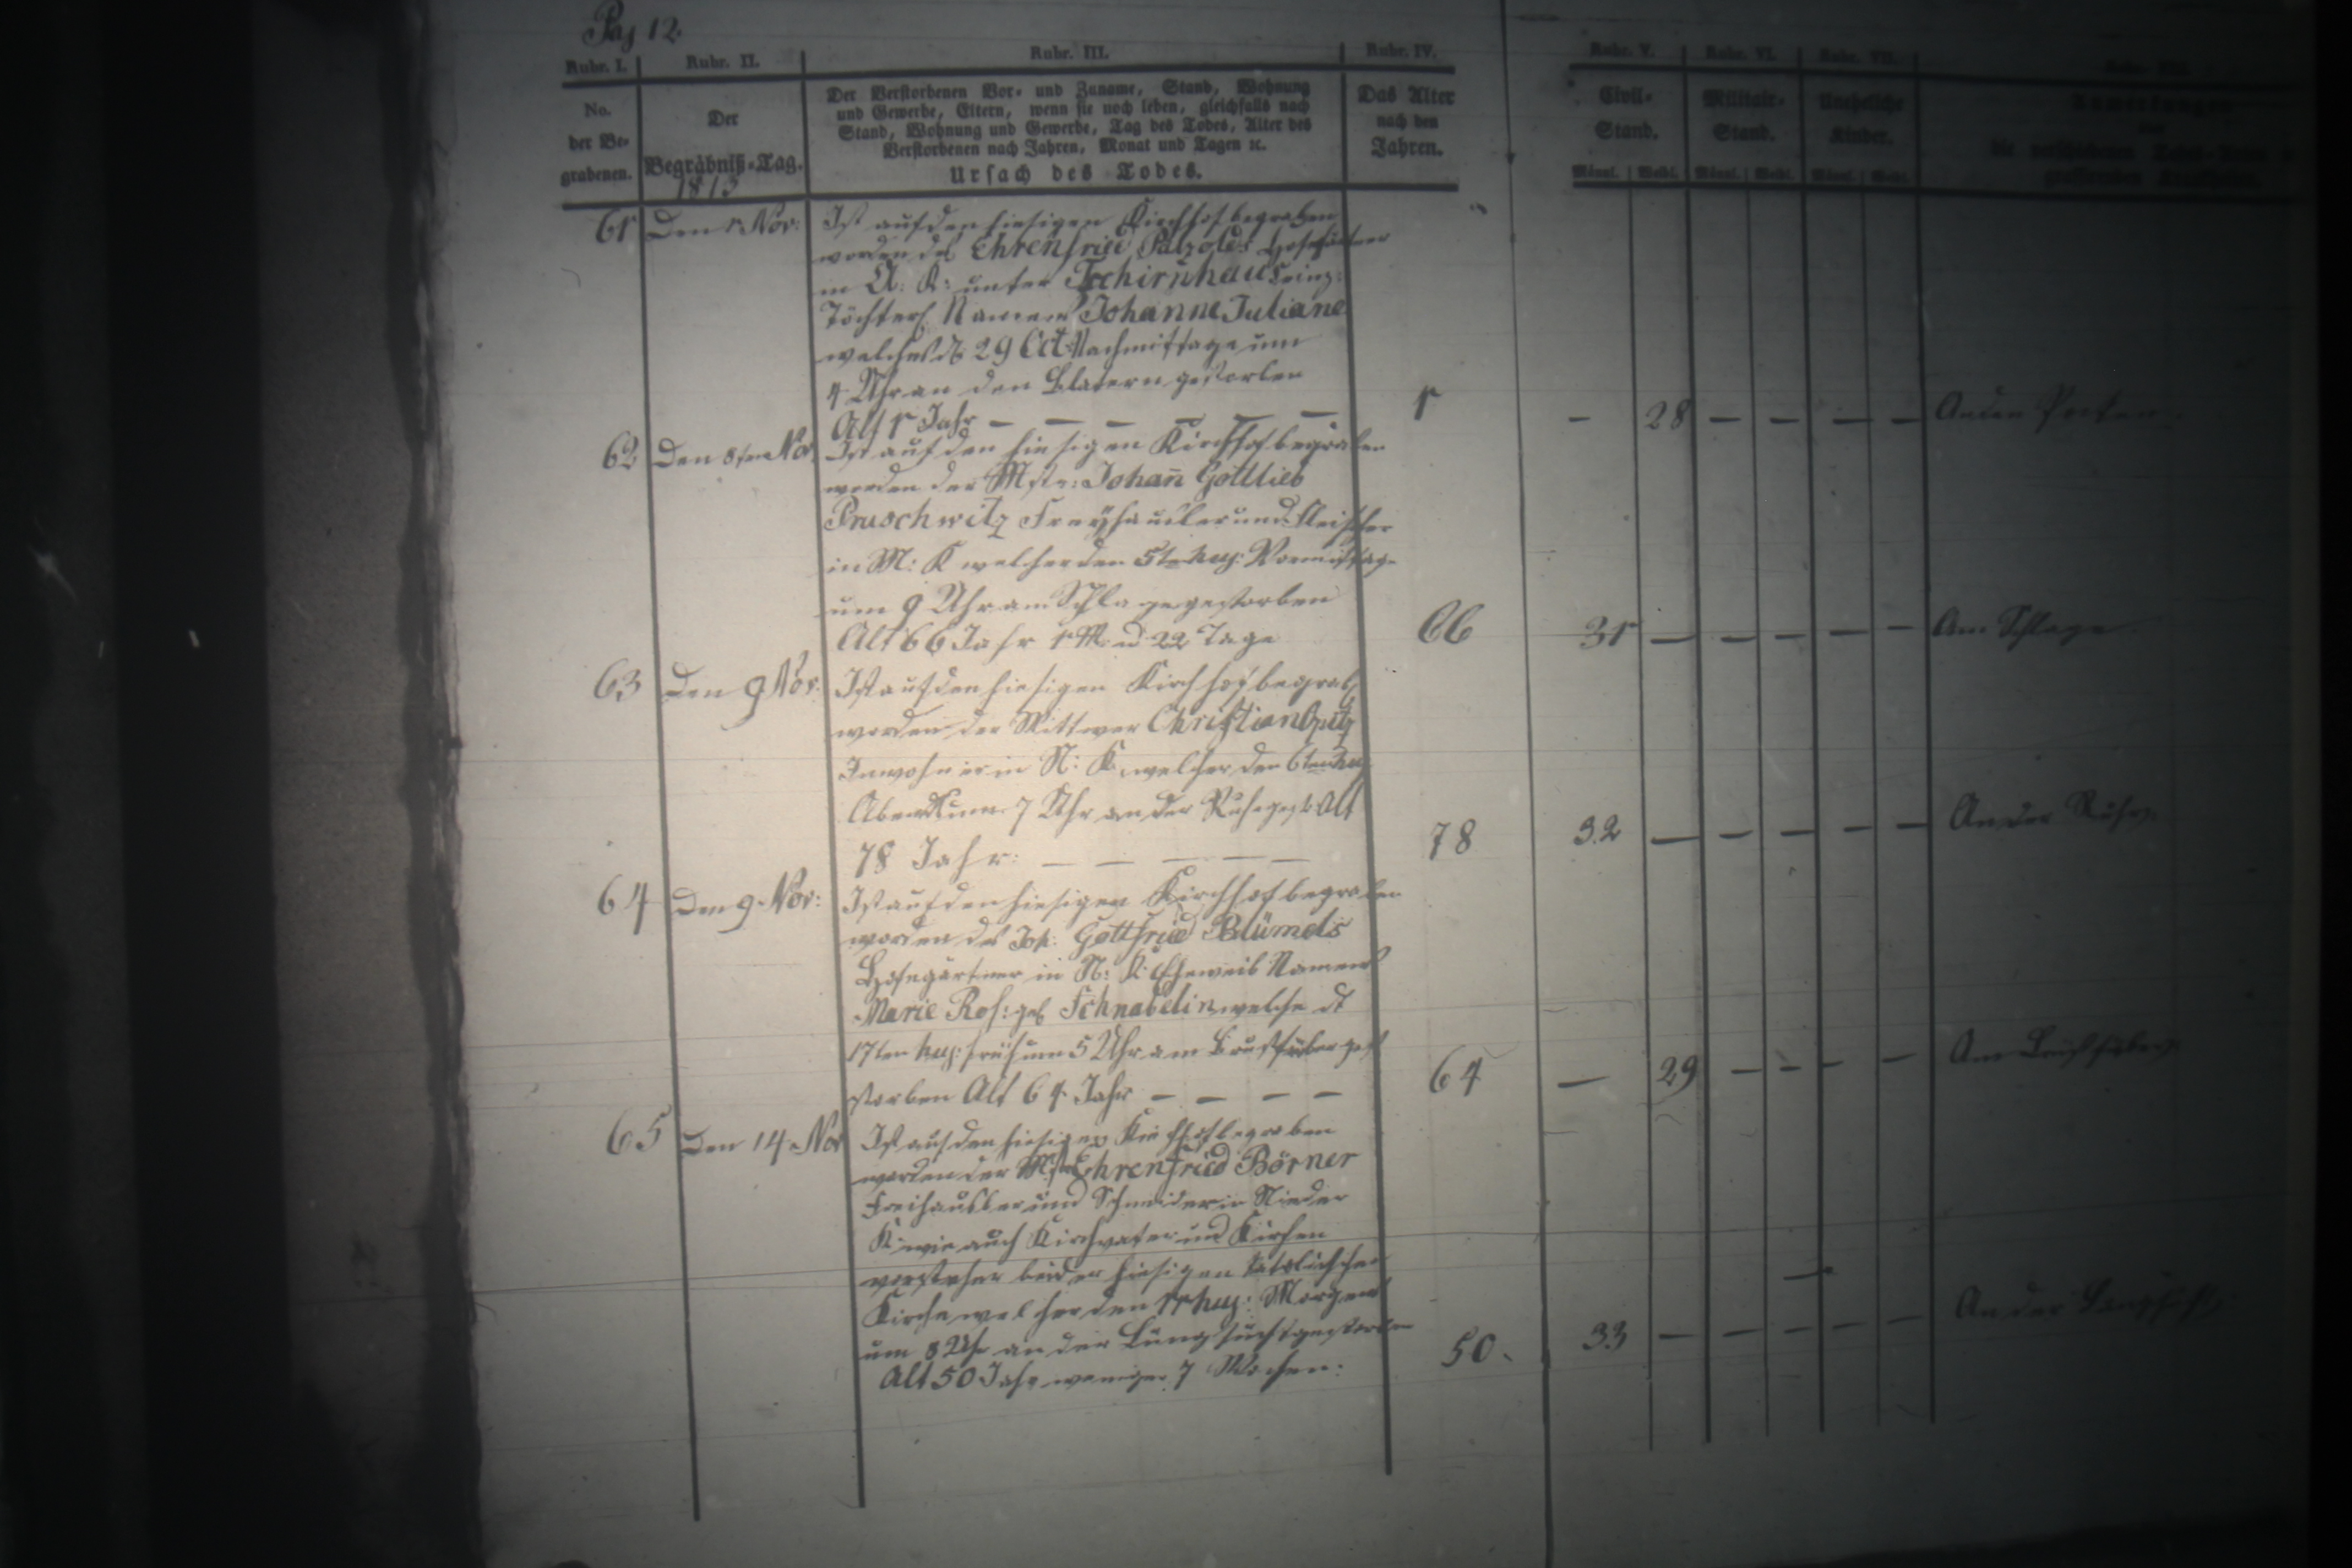 Pag 12.
Rubr. I. Rubr. II. Rubr. III. Rubr. IV. Rubr. V. Rubr. VI. Rubr. VII.
No. der Be- grabenen.
Der Begräbniß-Tag.
1813
Der Verstorbenen Vor- und Zuname, Stand, Wohnung
und Gewerbe, Eltern, wenn sie noch leben, gleichfalls nach
Stand, Wohnung und Gewerbe, Tag des Todes, Alter des
Verstorbenen nach Jahren, Monat und Tagen ꝛc.
Ursach des Todes.
Das Alter nach den Jahren.
Civil- Stand.
Militair- Stand.
Uneheliche Kinder.
Männl. Weibl. Männl. Weibl. Männl. Weibl.
61 Den 1 Nov:
Ist auf den hiesigen Kirchhof begraben
worden des Ehrenfried Hofegärtner
in K: unter Tschirnhaus einz:
Töchterl. Namens Johanne Juliane
welches d: 29 Oct: Nachmittags um
4 Uhr an den Blatern gestorben
Alt 1 Jahr — — — — — —
1 — 28 — — — — An den Pocken
62 Den 8ten Nov.
Ist auf den hiesigen Kirchhof begraben
worden der Mstr: Johañ Gottlieb
Pruschwitz Freyhäusler und Fleischer
in M: K welcher den 5ten huj: Vormittag
um 9 Uhr am Schlage gestorben
Alt 66 Jahr 1 M. u 22 Tage
66 31 — — — — — Am Schlage
63 Den 9 Nov:
Ist auf den hiesigen Kirchhof begrab
worden der Wittwer Christian Opitz
Inwohner in N: K. welcher den 6ten huj
Abends um 7 Uhr an der Ruhr gest: Alt
78 Jahr: — — — — —
78 32 — — — — — An der Ruhr
64 Den 9 Nov:
Ist auf den hiesigen Kirchhof begraben
worden des Joh: Gottfried Blümels
Hofegärtner in N: K: Eheweib Namens
Marie Ros: geb Schnabelin welche d
17ten huj: früh um 5 Uhr am
storben Alt 64 Jahr — — — —
64 — 29 — — — — Am
65 Den 14 Nov
Ist auf den hiesigen Kirchhof begraben
worden der Mstr Ehrenfried Börner
Freihäusler und Schneider in Nieder
K. wie auch Kirchvater und Kirchen
vorsteher bei der hiesigen
Kirche welcher den 11 huj: Morgens
um 8 Uhr an der Lungsucht gestorben
Alt 50 Jahr weniger 7 Wochen:
50. 33 — — — — — An der